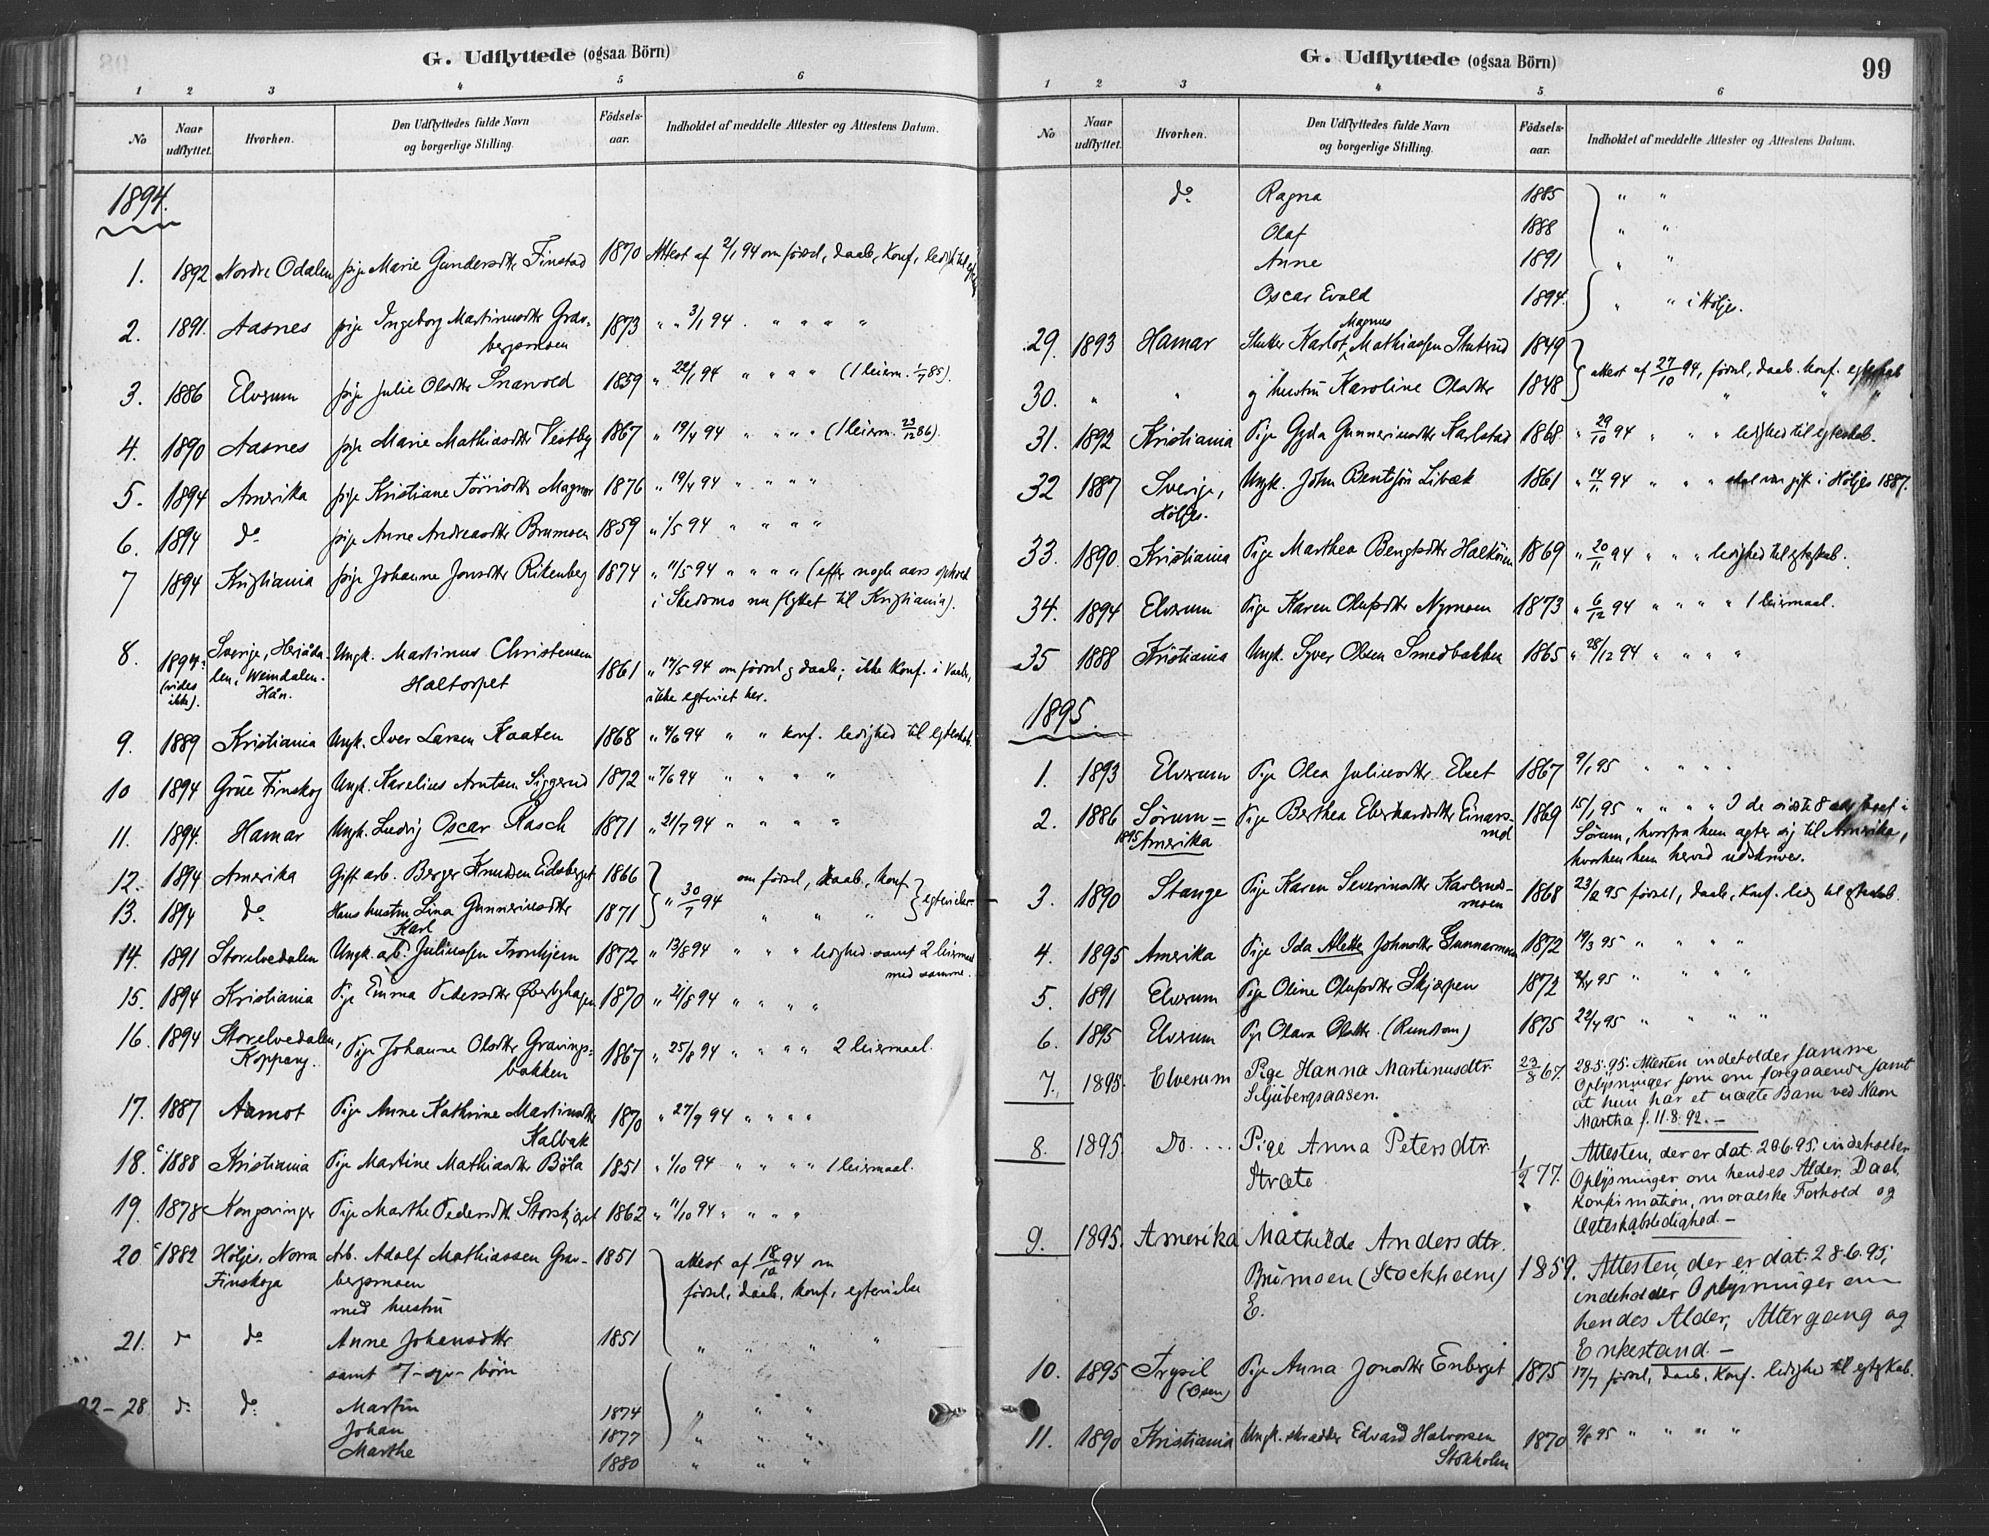 G. Udflyttede (ogsaa Börn)
1 2 3 4 5 6
No
Naar udflyttet.
Hvorhen.
Den Udflyttedes fulde Navn og borgerlige Stilling.
Födsels-aar.
Indholdet af meddelte Attester og Attestens Datum.
1894.
1. 1892 Nordre Odalen pige Marie Gundersdtr Finstad 1870 Attest af 2/1 94 om födsel, daab, konf,
2. 1891. Aasnes pige Ingeborg Martinusdtr Grav-
bergsmoen 1873 " " 3/1 94 . " " " "
3. 1886 Elverum pige Julie Olsdtr Snarvold 1859 " 22/1 94 " " " " (1 leierm. 1/7 85).
4. 1890 Aasnes pige Marie Mathiasdtr Vestby 1867 " 19/4 94 " " " " (1 leierm. 23/12 86).
5. 1894 Amerika pige Kristiane 1876 " 19/4 94 " " " "
6. 1894 do pige Anne Andreasdtr Brumoen 1859 " 1/5 94 " " " "
7 1894 Kristiania pige Johanne Jonsdtr Rikenberg 1874 " 11/5 94 " " " " (efter nogle aars ophold
i Skedsmo nu flyttet til Kristiania).
8. 1894 Sverige, Herjeda-
len, Wemdalen- Ungk. Martinus Christensen
Haltorpet 1861 " 17/5 94 om födsel og daab; ikke konf. i Vaaler,
(vides ikke). ikke egteviet her.
9. 1889 Kristiania Ungk. Iver Larsen Kaaten 1868 " 4/6 94 " " konf. ledighed til egteskab.
10 1894 Grue Finskog Ungk. Karelius Arntsen Siggerud 1872 " 7/6 94 " " " "
11. 1894. Hamar Ungk. Ludvig Oscar Rasch 1871 " 21/7 94 " " " "
12. 1894 Amerika Gift arb. Berger Knudsen Eidsberget 1866 om födsel, daab, konf.
13. 1894 do Hans hustru Lina Gunneriusdtr 1871 " 30/7 94 " " " egtevielse
14. 1891 Storelvedalen Ungk. arb. Karl Juliussen Tronhjem 1872 " 13/8 94 " " " ledighed samt 2 leiermaal
med samme.
15. 1894 Kristiania Pige Emma Pedersdtr Øverbyhagen 1870 " 21/8 94 " " " "
16. 1894 Storelvedalen,
Koppang. Pige Johanne Olsdtr Gravings-
bakken 1867 " 25/8 94 " " " " 2 leiermaal.
17. 1887 Aamot Pige Anne Kathrine Martinusdtr
Kalbak 1870 " 27/9 94 " " " "
18. c 1888 Kristiania Pige Martine Mathiasdtr Böla 1851 " 1/10 94 " " " " 1 leiermaal.
19. 1878 Kongsvinger Pige Marthe Pedersdtr Storskjæret 1862 " 11/10 94 " " " "
20. c 1882 Höljes, Norra
Finskoga Arb. Adolf Mathiassen Grav-
bergsmoen 1851 attest af 18/10 94 om
med hustru födsel, daab, konf, egtevielse
21. do do Anne Johansdtr 1851 " " " "
samt 7 - syv - börn
22 - 28 do do Martin 1874 " " "
Johan 1877 " " "
Marthe 1880 " " "
G. Udflyttede (ogsaa Börn)
99
1 2 3 4 5 6
No
Naar udflyttet.
Hvorhen.
Den Udflyttedes fulde Navn og borgerlige Stilling.
Födsels-aar.
Indholdet af meddelte Attester og Attestens Datum.
do Ragna 1885 " "
Olaf 1888 " "
Anne 1891 " "
Oscar Evald 1894. " " i Höljes.
29. 1893 Hamar Skutter Karlot Magnus Mathiassen Skuterud 1849
30. " " og hustru Karoline Olsdtr 1848 attest af 27/10 94, födsel, daab, konf. egteskab
31. 1892 Kristiania Pige Gyda Gunneriusdtr Karlstad 1868 " 29/10 94 " " " ledighed til egteskab.
32 1887 Sverige,
Höljes. Ungk. John Bentsön Libæk 1861 " 14/11 94 " " " skal være gift i Höljes 1887.
33. 1890 Kristiania Pige Marthea Bengtsdtr 1869 " 20/11 94 " " " ledighed til egteskab.
34. 1894 Elverum Pige Karen Olufsdtr Nymoen 1873 " 6/12 94 " " " " 1 leiermaal.
35 1888 Kristiania Ungk. Syver Olsen Smedbakken 1865 " 28/12 94 " " " "
1895.
1. 1893 Elverum Pige Olea Juliusdtr Elset 1867 9/1 95 " " " "
2. 1886 Sörum =
1895 Amerika Pige Berthea Eberhardsdtr Einars-
rud 1869 15/1 95 " " " " I de sidste 8 aar boet i
Sörum, hvorfra hun agter sig til Amerika,
hvorhen hun herved udskrives.
3. 1890 Stange Pige Karen Severinsdtr
moen 1868 23/2 95 födsel, daab, konf. ledig til egteskab.
4. 1895 Amerika Pige Ida Alette Johnsdtr Gunnarmoen 1872 19/3 95 " " " "
5. 1891 Elverum Pige Oline Olufsdtr Skjærpen 1872 95 " " " "
6. 1895 Elverum Pige Olava Olsdtr. (Rundtom) 1875 22/4 95 " " " "
7. 1895. Elverum Pige Hanna Martinusdtr.
Siljubergsaasen. 23/8 67. 28.5.95. Attesten indeholder samme
Oplysninger som om foregaaende samt
at hun har et uægte Barn ved Navn
Martha f. 11.8.92. -
8. 1895. Do. .... Pige Anna Petersdtr.
Stræte 1/2 77. Attesten, der er dat. 20.6.95, indeholder
Oplysninger om hendes Alder, Daab,
Konfirmation, moralske Forhold og
Ægteskabsledighed. -
9. 1895. Amerika Mathilde Andersdtr.
Brumoen (Stockholm) 1859. Attesten, der er dat. 28.6.95,
E. indeholder Oplysninger om
hendes Alder, Altergang og
Enkestand. -
10. 1895 Trysil
(Osen) Pige Anna Jonsdtr Enberget 1875 17/7 födsel, daab, konf. ledighed til egteskab.
11. 1890 Kristiania Ungk. skrædder Edvard Halvorsen
Stokholm 1870 9/8 95 " " " "